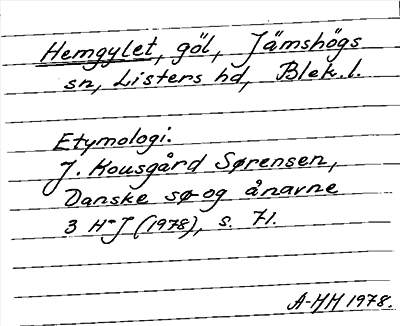 Hemgylet, göl, Jämshögs
sn, Listers hd, Blek. l.
Etymologi:
J. Kousgård Sørensen,
Danske sø- og ånavne
3 H-J (1978), s. 71.
A-HH 1978.